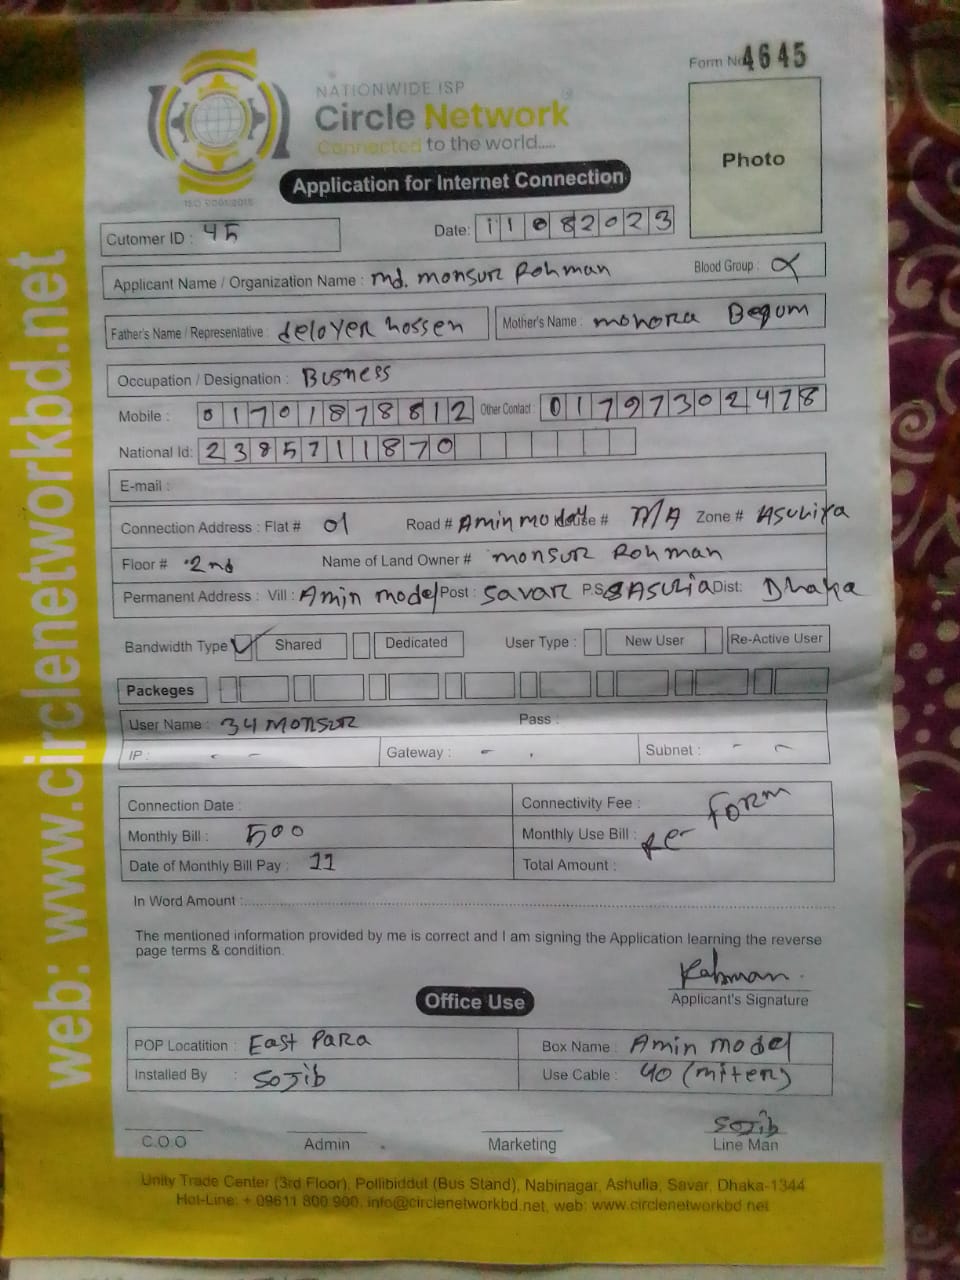 Form No 4645
NATIONWIDE ISP
Circle Network
Connected to the world.....
ISO 9001:2015
Photo
Application for Internet Connection
Cutomer ID : 45
Date: 11082023
Applicant Name / Organization Name : md. monsur Rohman Blood Group :
Father's Name / Representative : deloyer hossen Mother's Name : monora Begum
Occupation / Designation : Busness
Mobile : 01701878812 Other Contact : 01797302478
National Id: 2385711870
E-mail :
Connection Address : Flat # 01 Road # Amin model House # N/A Zone # Asuliya
Floor # 2nd Name of Land Owner # monsur Rohman
Permanent Address : Vill : Amin model Post : Savar P.S ASulia Dist: Dhaka
Bandwidth Type Shared Dedicated User Type : New User Re-Active User
Packeges
User Name : 34 MONSUR Pass :
IP : - - Gateway : - . Subnet : - -
Connection Date : Connectivity Fee :
Monthly Bill : 500 Monthly Use Bill : Re- Form
Date of Monthly Bill Pay : 11 Total Amount :
In Word Amount :
The mentioned information provided by me is correct and I am signing the Application learning the reverse
page terms & condition.
Rahman
Applicant's Signature
Office Use
POP Locatition : East Para Box Name : Amin model
Installed By : Sojib Use Cable : 40 (miter)
Sojib
C.O.O Admin Marketing Line Man
Unity Trade Center (3rd Floor), Pollibiddut (Bus Stand), Nabinagar, Ashulia, Savar, Dhaka-1344
Hot-Line: + 09611 800 900, info@circlenetworkbd.net, web: www.circlenetworkbd.net
web: www.circlenetworkbd.net